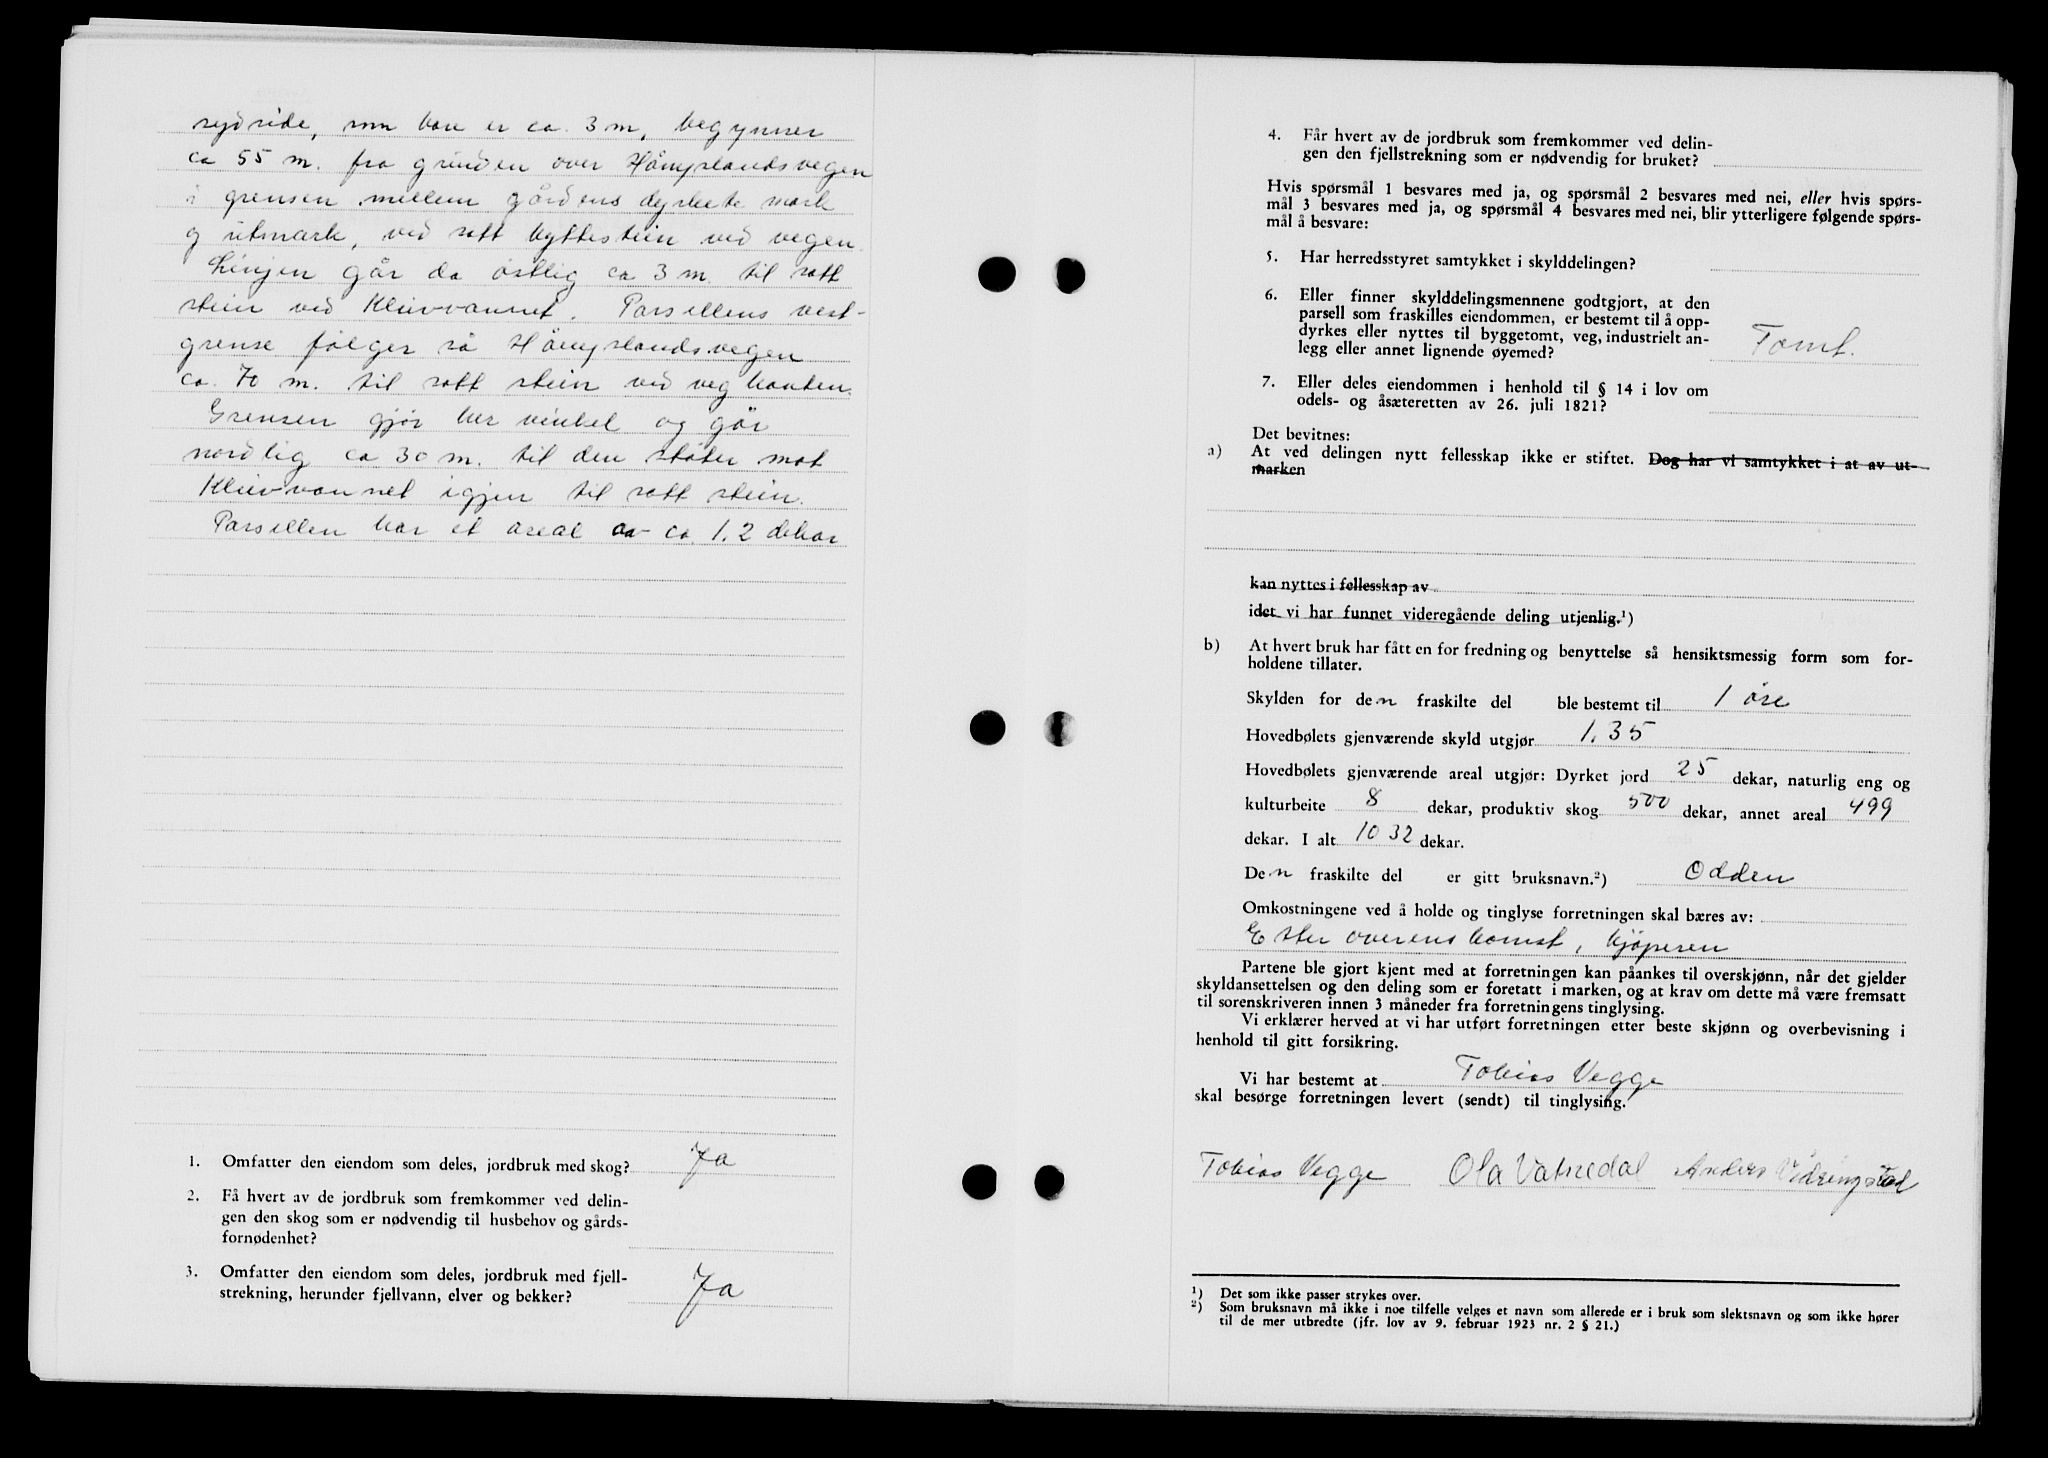 sydside, som bare er ca. 3 m, begynner
ca 55 m. fra grinden over Håmyrlandsvegen
i grensen mellem gårdens dyrkete mark
og utmark, ved satt byttestein ved vegen.
Linjen går da östlig ca 3 m til satt
stein ved Kleivvannet. Parsellens vest-
grense følger så Håmyrlandsvegen
ca. 70 m. til satt stein ved vegkanten.
Grensen gjör her vinkel og går
nordlig ca 30 m. til den stöter mot
Kleivvannet igjen til satt stein.
Parsellen har et areal av ca. 1.2 dekar
1. Omfatter den eiendom som deles, jordbruk med skog? Ja
2. Få hvert av de jordbruk som fremkommer ved delin-
gen den skog som er nødvendig til husbehov og gårds-
fornødenhet?
3. Omfatter den eiendom som deles, jordbruk med fjell-
strekning, herunder fjellvann, elver og bekker? Ja
4. Får hvert av de jordbruk som fremkommer ved delin-
gen den fjellstrekning som er nødvendig for bruket?
Hvis spørsmål 1 besvares med ja, og spørsmål 2 besvares med nei, eller hvis spørs-
mål 3 besvares med ja, og spørsmål 4 besvares med nei, blir ytterligere følgende spørs-
mål å besvare:
5. Har herredsstyret samtykket i skylddelingen?
6. Eller finner skylddelingsmennene godtgjort, at den
parsell som fraskilles eiendommen, er bestemt til å opp-
dyrkes eller nyttes til byggetomt, veg, industrielt an-
legg eller annet lignende øyemed? Tomt.
7. Eller deles eiendommen i henhold til § 14 i lov om
odels- og åsæteretten av 26. juli 1821?
Det bevitnes:
a) At ved delingen nytt fellesskap ikke er stiftet. Dog har vi samtykket i at av ut-
marken
kan nyttes i fellesskap av
idet vi har funnet videregående deling utjenlig.¹)
b) At hvert bruk har fått en for fredning og benyttelse så hensiktsmessig form som for-
holdene tillater.
Skylden for den fraskilte del ble bestemt til 1 öre
Hovedbølets gjenværende skyld utgjør 1.35
Hovedbølets gjenværende areal utgjør: Dyrket jord 25 dekar, naturlig eng og
kulturbeite 8 dekar, produktiv skog 500 dekar, annet areal 499
dekar. I alt 1032 dekar.
Den fraskilte del er gitt bruksnavn.²) Odden
Omkostningene ved å holde og tinglyse forretningen skal bæres av:
Etter overenskomst, kjöperen
Partene ble gjort kjent med at forretningen kan påankes til overskjønn, når det gjelder
skyldansettelsen og den deling som er foretatt i marken, og at krav om dette må være fremsatt
til sorenskriveren innen 3 måneder fra forretningens tinglysing.
Vi erklærer herved at vi har utført forretningen etter beste skjønn og overbevisning i
henhold til gitt forsikring.
Vi har bestemt at Tobias Vegge
skal besørge forretningen levert (sendt) til tinglysing.
Tobias Vegge Ola Vatnedal Anders Vidringstad
¹) Det som ikke passer strykes over.
²) Som bruksnavn må ikke i noe tilfelle velges et navn som allerede er i bruk som slektsnavn og som ikke hører
til de mer utbredte (jfr. lov av 9. februar 1923 nr. 2 § 21.)